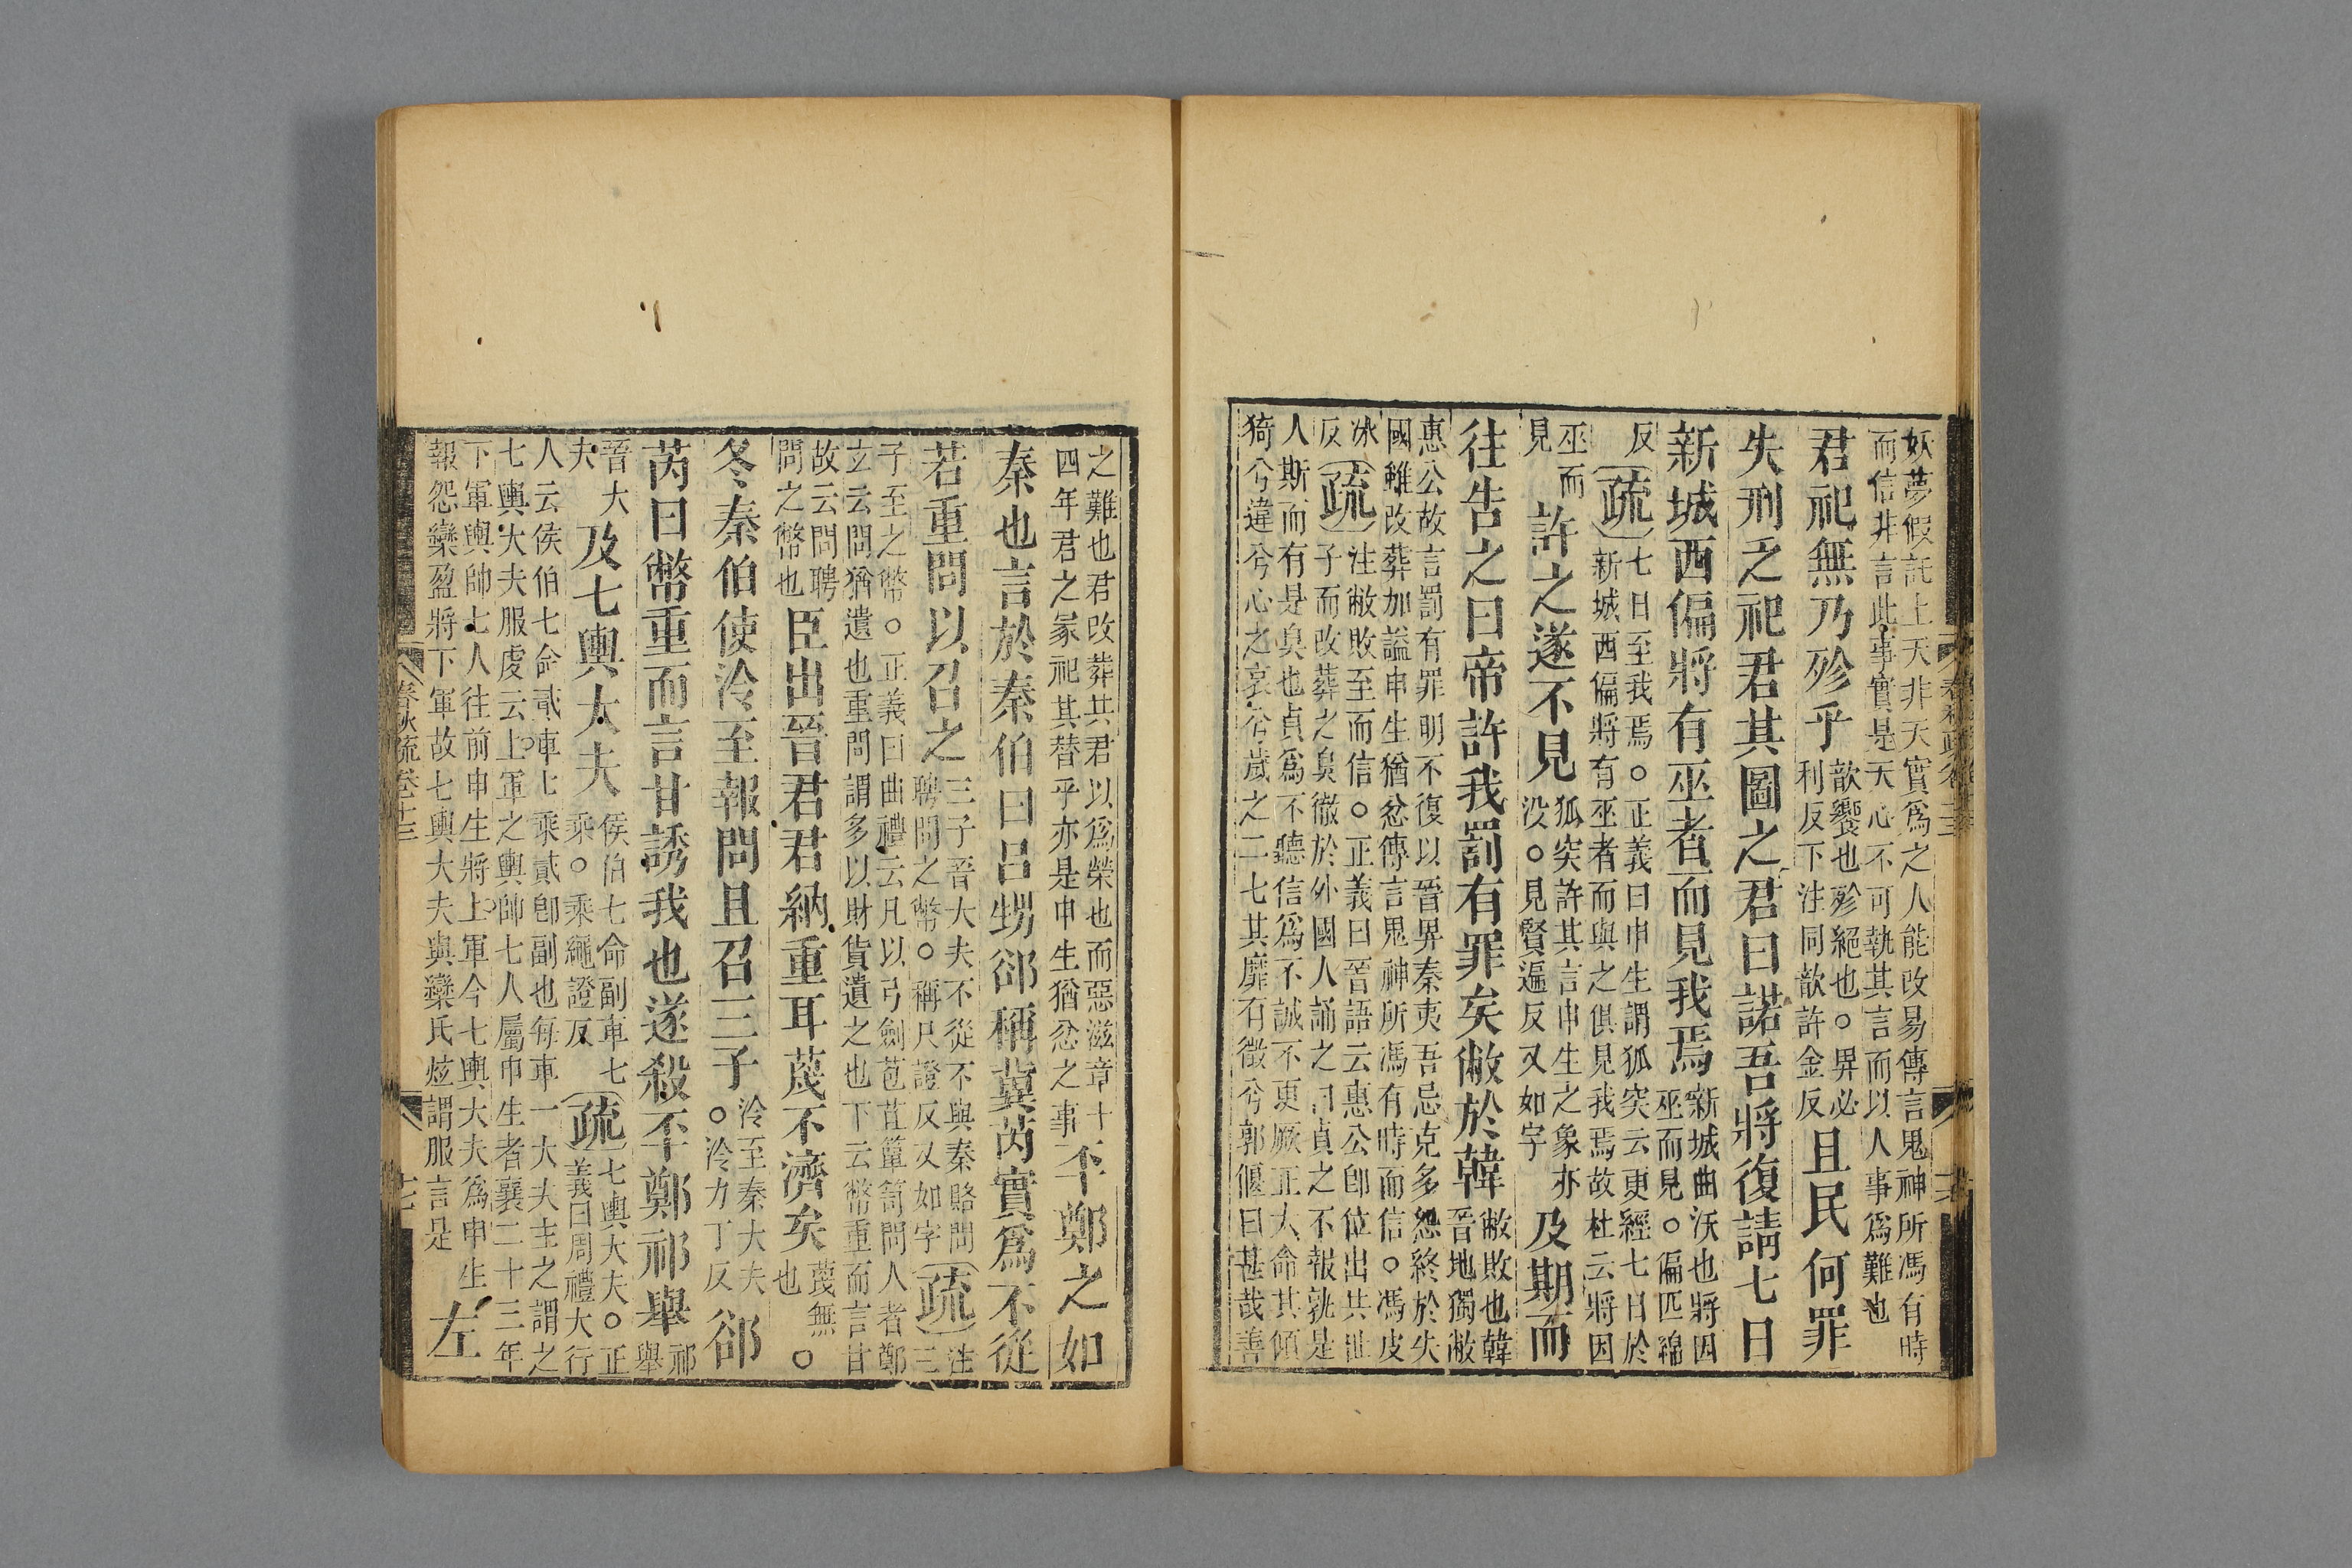 妖夢假託上天非天實爲之人能改易傳言鬼神所馮有時
而信非言此事實是天心不可執其言而以人事爲難也
君祀無乃殄乎歆饗也殄絕也○畀必
利反下注同歆許金反且民何罪
失刑乏祀君其圖之君曰諾吾將復請七日
新城西偏將有巫者而見我焉新城曲沃也將因
巫而見○偏匹綿
反
疏七日至我焉○正義曰申生謂狐突云更經七日於
新城西偏將有巫者而與之俱見我焉故杜云將因
巫而
見許之遂不見狐突許其言申生之象亦
没○見賢遍反又如字及期而
往告之曰帝許我罰有罪矣敝於韓敝敗也韓
晉地獨敝
惠公故言罰有罪明不復以晉畀秦夷吾忌克多怨終於失
國雖改葬加謚申生猶忿傳言鬼神所馮有時而信○馮皮
冰
反疏注敝敗至而信○正義曰晉語云惠公卽位出共世
子而改葬之臭徹於外國人誦之曰貞之不報孰是
人斯而有是臭也貞爲不聽信爲不誠不更厥正大命其傾
猗兮違兮心之哀兮歲之二七其靡有徵兮郭偃曰甚哉善
之難也君改葬共君以爲榮也而惡滋章十
四年君之冢祀其替乎亦是申生猶忿之事㔻鄭之如
秦也言於秦伯曰呂甥郤稱冀芮實爲不從
若重問以召之三子晉大夫不從不與秦賂問
聘問之幣○稱尺證反又如字疏注三
子至之幣○正義曰曲禮云凡以弓劍苞苴簞笥問人者鄭
玄云問猶遺也重問謂多以財貨遺之也下云幣重而言甘
故云問聘
問之幣也臣出晉君君納重耳蔑不濟矣蔑無
也○
冬秦伯使泠至報問且召三子泠至秦大夫
○泠力丁反郤
芮曰幣重而言甘誘我也遂殺㔻鄭祁舉祁
舉
晉大
夫及七輿大夫侯伯七命副車七
乘○乘繩證反疏七輿大夫○正
義曰周禮大行
人云侯伯七命貳車七乘貳卽副也每車一大夫主之謂之
七輿大夫服虔云上軍之輿帥七人屬申生者襄二十三年
下軍輿帥七人往前申生將上軍今七輿大夫爲申生
報怨欒盈將下軍故七輿大夫與欒氏炫謂服言是左
春秋疏卷十三
十七